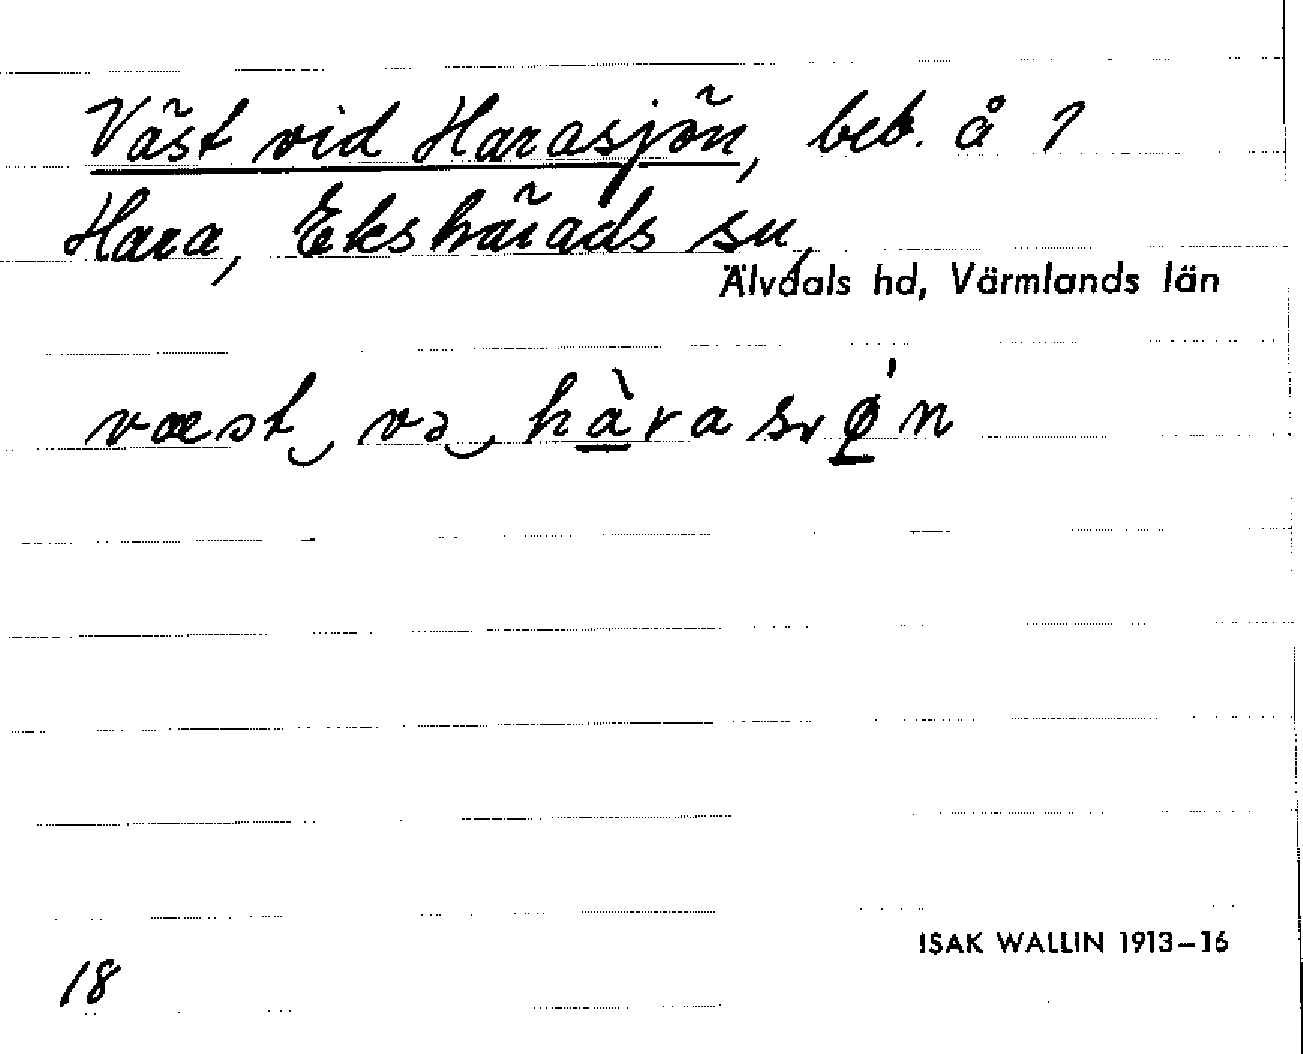 Väst vid Harasjön, beb. å 1
Hara, Ekshärads sn,
Älvdals hd, Värmlands län
væst və hàrasrǿn
ISAK WALLIN 1913–16
18